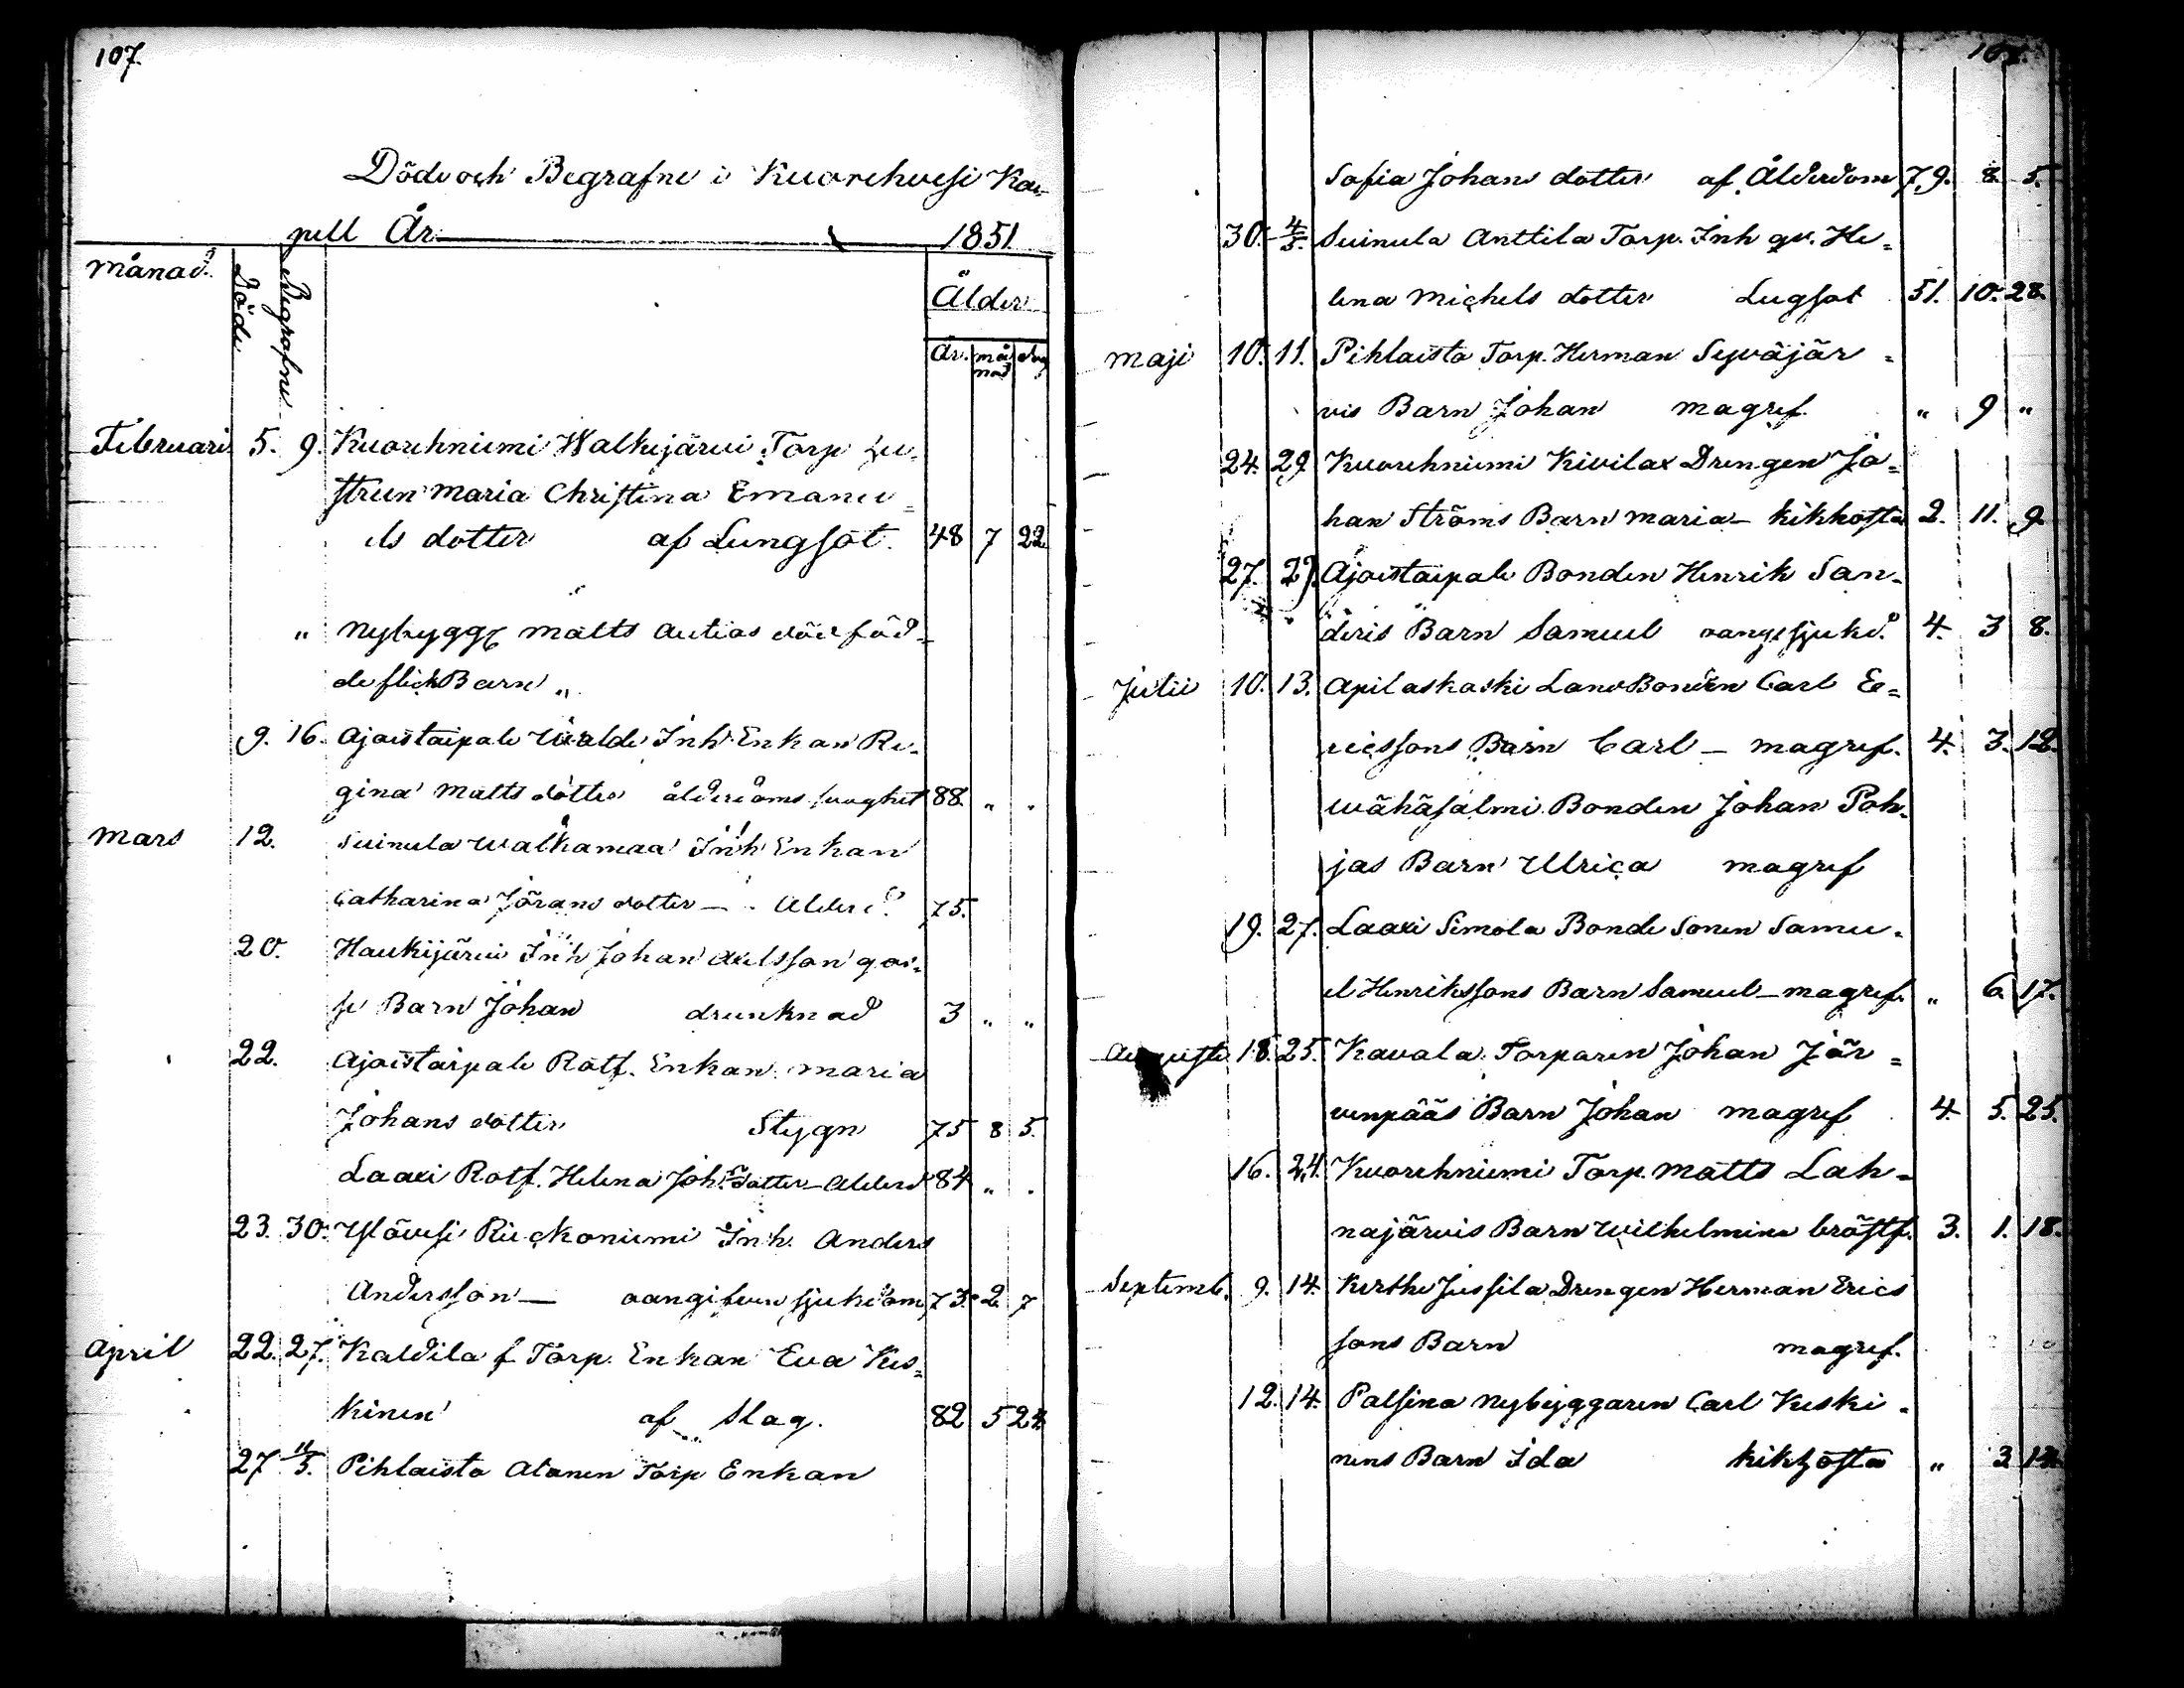 107.
Döde och Begrafne i Kuorehvesi Ka-
pell År 1851
Månad. Döde Begrafne Ålder
År. månad dag
Februari 5. 9. Kuorehniemi Walkejärvi Torp hu-
strun Maria Christina Emanu=
els dotter af Lungsot. 48 7 22
" Nybygg Matts Autios död föd-
de flick Barn "
9. 16. Ajostaipale Uialde Inh Enkan Re-
gina Matts dotter ålderdoms svaghet 88. " "
Mars 12. Suinula Walkamaa Inh Enkan
Catharina Jörans dotter — Alderd. 75.
20. Haukijärvi Inh Johan Axelsson
Barn Johan drunknad 3 " "
22. Ajostaipale Rotf. Enkan Maria
Johans dotter Stygn 75 8 5.
Laaxi Rotf. Helena Joh. dotter — Alderd 84 " "
23. 30. Ylövesi Rieckoniemi Inh. Anders
Andersson — oangifven sjukdom 73. 2 7
April 22. 27. Kaldila f Torp. Enkan Eva Kes=
kinen af Slag. 82 5 24
27 11/5. Pihlaisto Alanen Torp Enkan
107.
Sofia Johans dotter af Ålderdom 79. 8. 5.
30. 4/5. Suinula Anttila Torp. Inh qv. He=
lena Michels dotter Lugsot 51. 10. 28.
Maji 10. 11. Pihlaisto Torp. Herman Syväjär=
vis Barn Johan magref. " 9 "
24. 29 Kuorehniemi Kivilax Drengen Jo=
han Ströms Barn Maria — kikhosta 2. 11. 9.
27. 29. Ajostaipale Bonden Henrik San-
deris Barn Samuel oangf sjukd. 4. 3 8.
Julii 10. 13. Apilaskoski LandBonden Carl Er=
icssons Barn Carl — magref. 4. 3. 18.
Wähäsalmi Bonden Johan Poh-
jas Barn Ulrica magref
19. 27. Laaxi Simola Bonde Sonen Samu-
el Henrikssons Barn Samuel — magref. " 6. 17.
Augusti 18. 25. Kavala Torparen Johan Jär=
venpääs Barn Johan magref 4. 5. 25.
16. 24. Kuorehniemi Torp. Matts Lah=
najärvis Barn Wilhelmina bröstf. 3. 1. 18.
Septemb. 9. 14. Kerthe Jussila Drengen Herman Erics
sons Barn magref.
12. 14. Palsina Nybyggaren Carl Keski-
nens Barn Ida kikhosta " 3